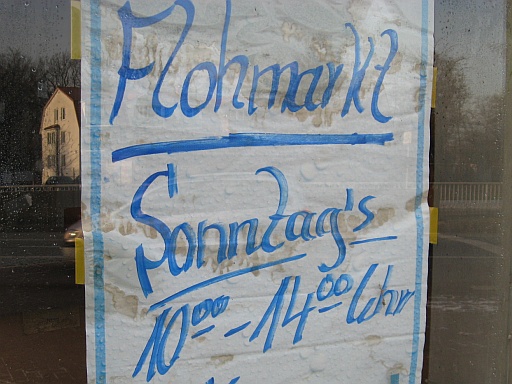 Flohmarkt
Sonntag's
10⁰⁰ - 14⁰⁰ Uhr